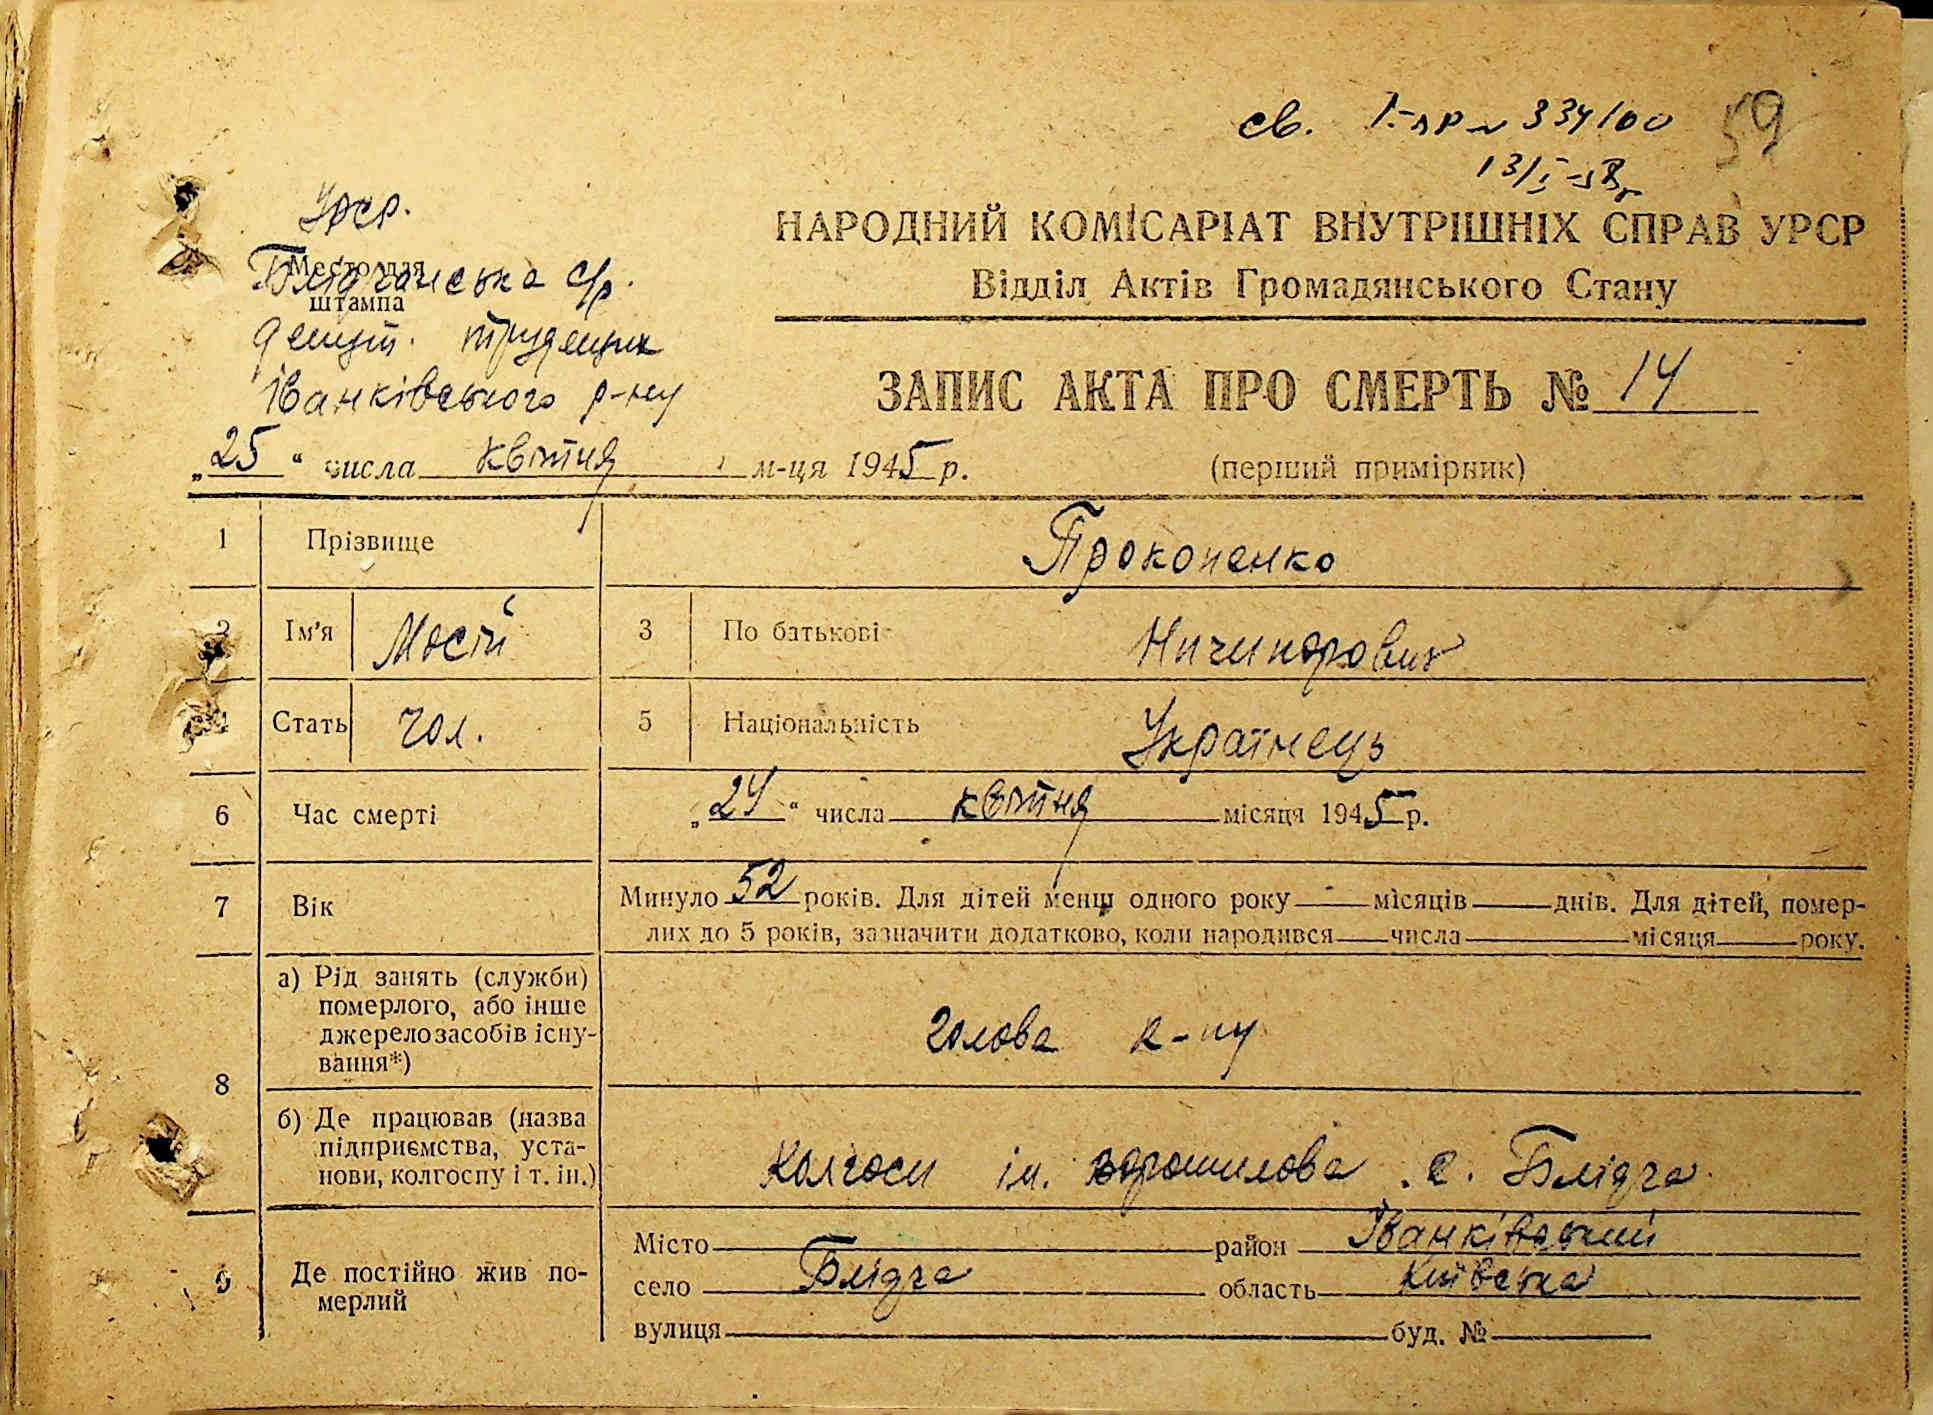 св. І-ЛР № 334100 59
13/І-58р
Урср.
Місто для
штампа
Блідчанська с/р.
депут. трудящих
Іванківського р-ну
НАРОДНИЙ КОМІСАРІАТ ВНУТРІШНІХ СПРАВ УРСР
Відділ Актів Громадянського Стану
ЗАПИС АКТА ПРО СМЕРТЬ № 14
„25" числа квітня м-ця 1945 р.
(перший примірник)
1 Прізвище Прокопенко
2 Ім'я Мосій 3 По батькові Ничипорович
4 Стать чол. 5 Національність Українець
6 Час смерті „24" числа квітня місяця 1945 р.
7 Вік Минуло 52 років. Для дітей менш одного року — місяців — днів. Для дітей, помер-
лих до 5 років, зазначити додатково, коли народився — числа — місяця — року.
8 а) Рід занять (служби)
померлого, або інше
джерело засобів існу-
вання*)
голова к-пу
б) Де працював (назва
підприємства, уста-
нови, колгоспу і т. ін.)
Колгосп ім. Ворошилова с. Блідча
9 Де постійно жив по-
мерлий
Місто район Іванківський
село Блідча область Київська
вулиця буд. №